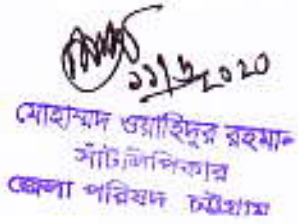 ১১/৬/২০২০
মোহাম্মদ ওয়াহিদুর রহমান
সাঁটলিপিকার
জেলা পরিষদ চট্টগ্রাম